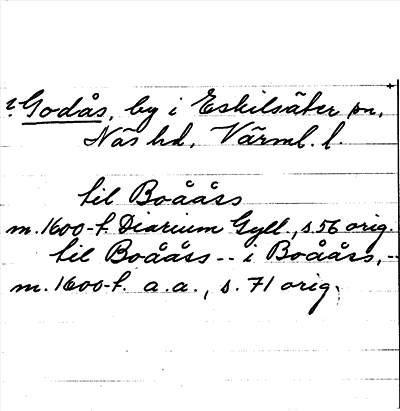 ? Godås, by i Eskilsäter sn,
Näs hd, Värml. l.
til Boåårs
m. 1600-t. Diarium Gyll., s. 56 orig.
til Boåårs -- i Boåårs, --
m. 1600-t. a. a., s. 71 orig.